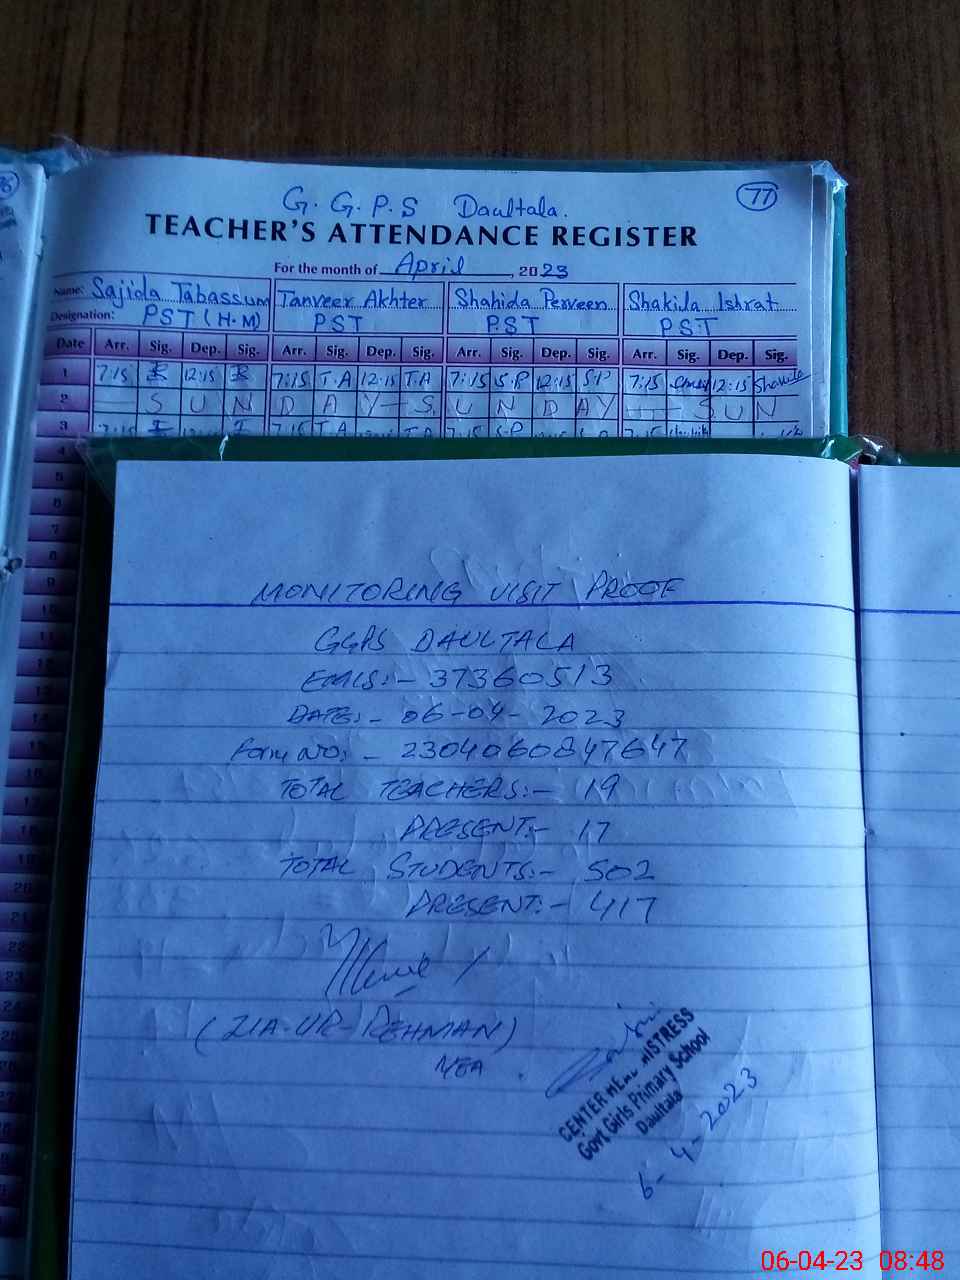 G.G.P.S Daultala.
77
TEACHER'S ATTENDANCE REGISTER
For the month of April, 2023
Name: Sajida Tabassum Tanveer Akhter Shahida Perveen Shakila Ishrat
Designation: PST (H.M) PST PST PST
Date Arr. Sig. Dep. Sig. Arr. Sig. Dep. Sig. Arr. Sig. Dep. Sig. Arr. Sig. Dep. Sig.
1 7:15 12:15 7:15 T.A 12:15 T.A 7:15 S.P 12:15 S.P 7:15 12:15 Shakila
2 S U N D A Y S U N D A Y S U N
3 7:15 7:15 T.A T.A 7:15 S.P 7:15
4
5
6
7
8
9
10
11
12
13
14
MONITORING VISIT PROOF
GGPS DAULTALA
EMIS:- 37360513
DATE:- 06-04-2023
Form NO:- 2304060847647
TOTAL TEACHERS:- 19
PRESENT:- 17
TOTAL STUDENTS:- 502
PRESENT:- 417
(ZIA-UR-REHMAN)
MEA
CENTER HEAD MISTRESS
Govt Girls Primary School
Daultala
6-4-2023
06-04-23 08:48